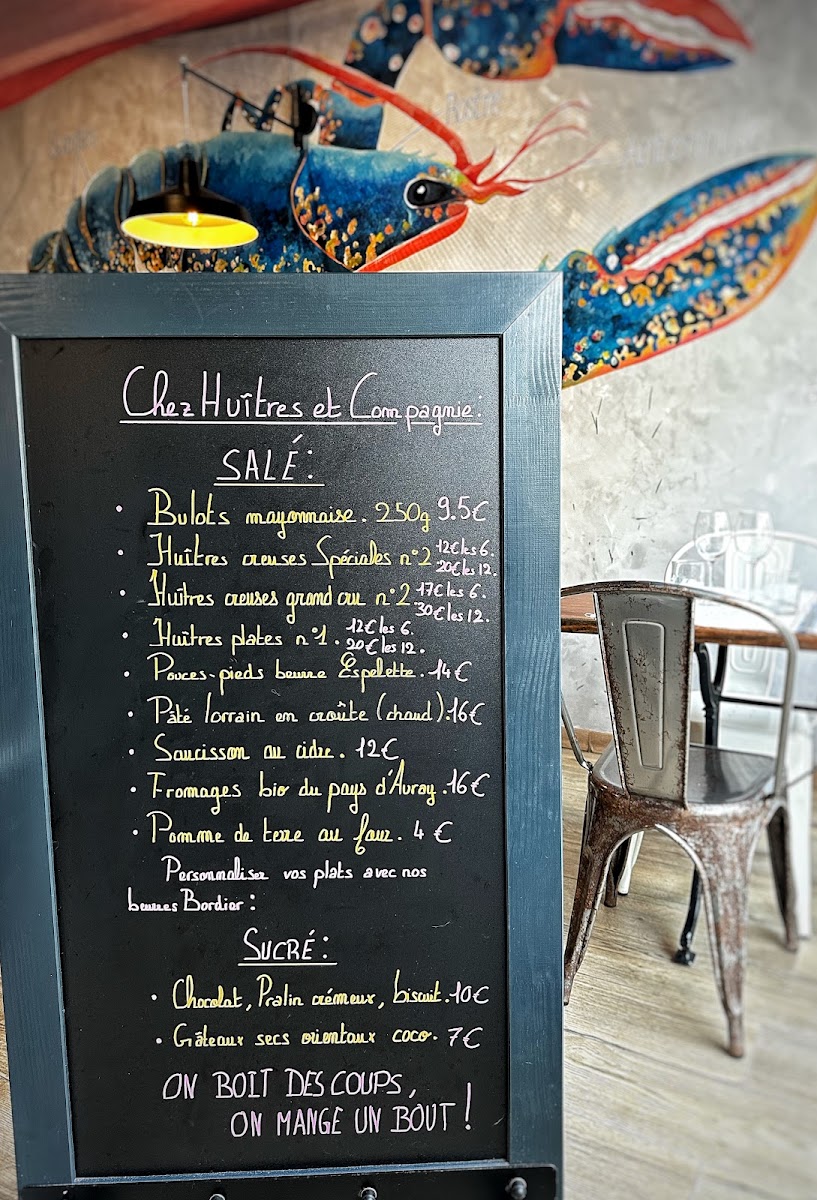 Chez Huîtres et Compagnie:
SALÉ:
• Bulots mayonnaise. 250g 9.5€
• Huîtres creuses Spéciales n°2 12€ les 6. 20€ les 12.
• Huîtres creuses grand cru n°2 17€ les 6. 30€ les 12.
• Huîtres plates n°1. 12€ les 6. 20€ les 12.
• Pouces-pieds beurre Espelette. 14€
• Pâté lorrain en croûte (chaud). 16€
• Saucisson au cidre. 12€
• Fromages bio du pays d'Auray. 16€
• Pomme de terre au four. 4€
Personnaliser vos plats avec nos
beurres Bordier:
SUCRÉ:
• Chocolat, Pralin crémeux, biscuit. 10€
• Gâteaux secs orientaux coco. 7€
ON BOIT DES COUPS,
ON MANGE UN BOUT!